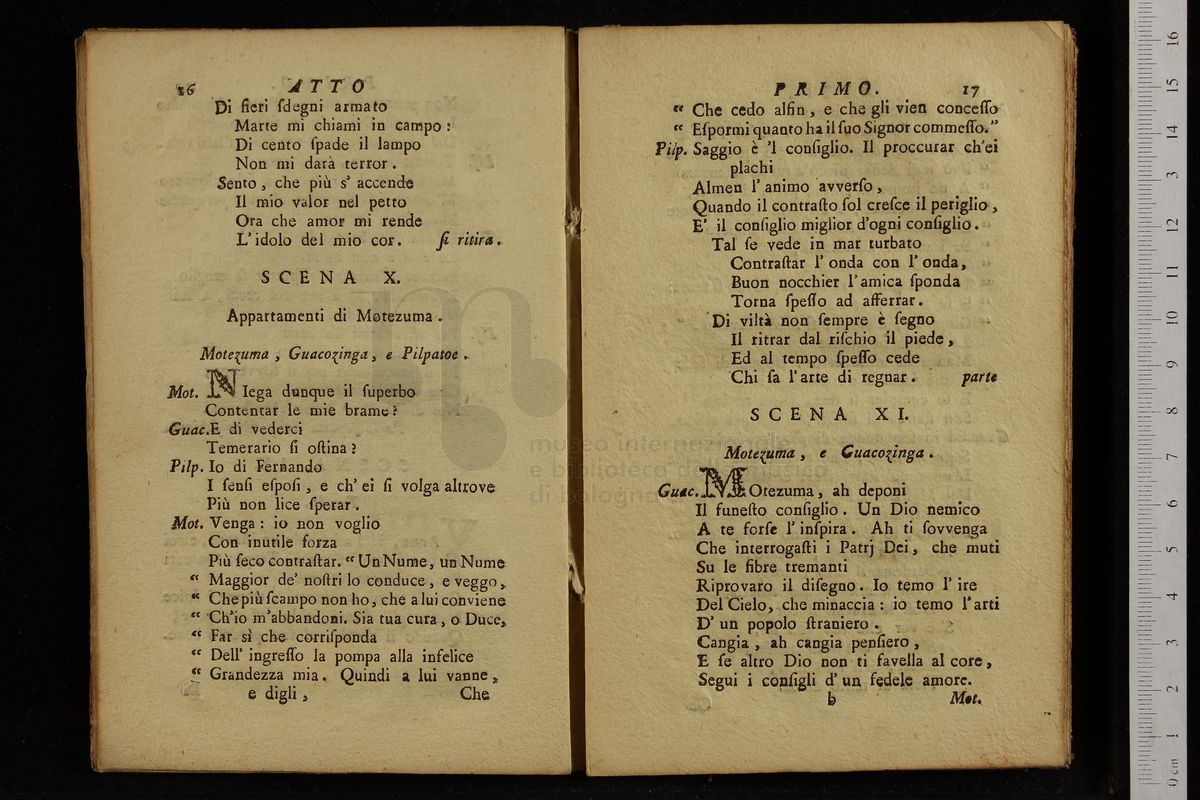 16 ATTO
Di fieri ſdegni armato
Marte mi chiami in campo :
Di cento ſpade il lampo
Non mi darà terror .
Sento , che più s' accende
Il mio valor nel petto
Ora che amor mi rende
L'idolo del mio cor . ſi ritira .
SCENA X.
Appartamenti di Motezuma .
Motezuma , Guacozinga , e Pilpatoe .
Mot. NIega dunque il ſuperbo
Contentar le mie brame ?
Guac. E di vederci
Temerario ſi oſtina ?
Pilp. Io di Fernando
I ſenſi eſpoſi , e ch' ei ſi volga altrove
Più non lice ſperar .
Mot. Venga : io non voglio
Con inutile forza
Più ſeco contraſtar. “ Un Nume, un Nume
“ Maggior de' noſtri lo conduce , e veggo,
“ Che più ſcampo non ho, che a lui conviene
“ Ch'io m'abbandoni. Sia tua cura , o Duce,
“ Far sì che corriſponda
“ Dell' ingreſſo la pompa alla infelice
“ Grandezza mia . Quindi a lui vanne ,
e digli , Che
PRIMO. 17
“ Che cedo alfin , e che gli vien conceſſo
“ Eſpormi quanto ha il ſuo Signor commeſſo.”
Pilp. Saggio è 'l conſiglio. Il proccurar ch'ei
plachi
Almen l' animo avverſo ,
Quando il contraſto ſol creſce il periglio ,
E' il conſiglio miglior d'ogni conſiglio .
Tal ſe vede in mar turbato
Contraſtar l' onda con l' onda,
Buon nocchier l'amica ſponda
Torna ſpeſſo ad afferrar .
Di viltà non ſempre è ſegno
Il ritrar dal riſchio il piede ,
Ed al tempo ſpeſſo cede
Chi ſa l'arte di regnar . parte
SCENA XI.
Motezuma , e Guacozinga .
Guac. MOtezuma , ah deponi
Il funeſto conſiglio . Un Dio nemico
A te forſe l' inſpira . Ah ti ſovvenga
Che interrogaſti i Patrj Dei , che muti
Su le fibre tremanti
Riprovaro il diſegno . Io temo l' ire
Del Cielo, che minaccia : io temo l'arti
D' un popolo ſtraniero .
Cangia , ah cangia penſiero ,
E ſe altro Dio non ti favella al core ,
Segui i conſigli d' un fedele amore.
b Mot.
museo internazionale
e biblioteca della musica
di bologna
0 cm 1 2 3 4 5 6 7 8 9 10 11 12 13 14 15 16